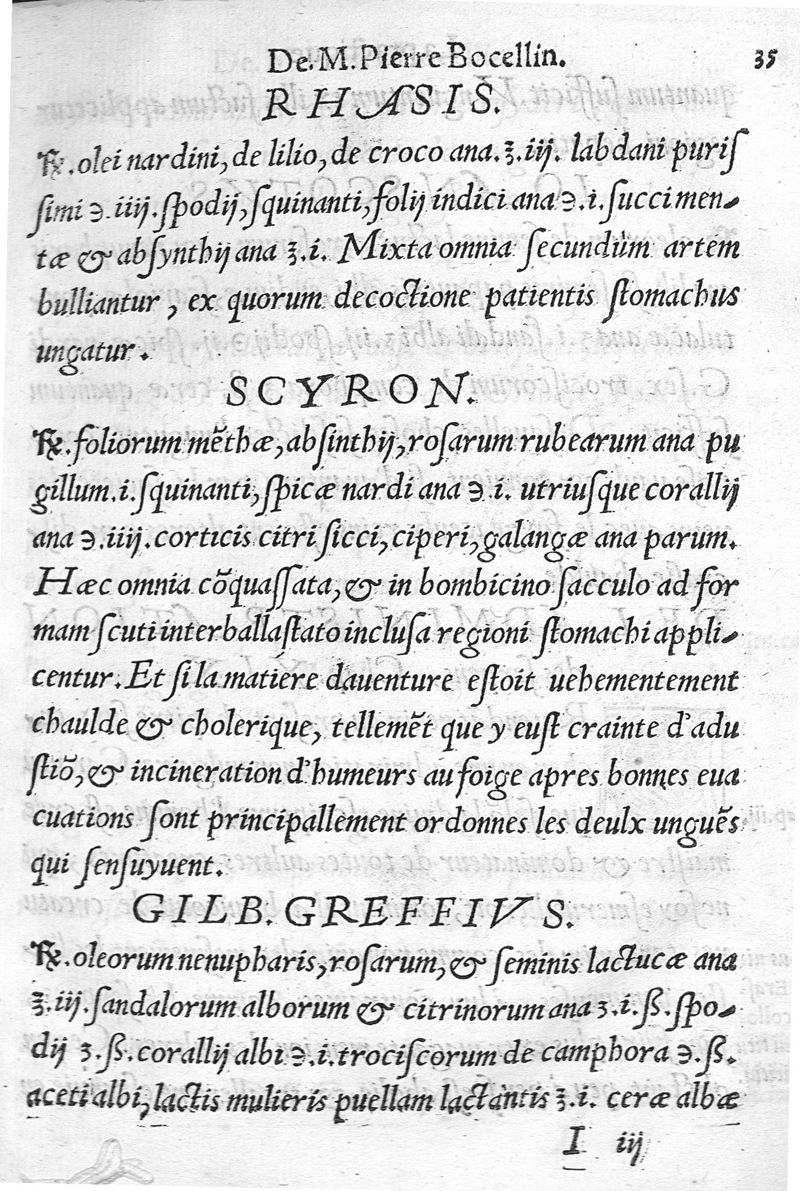 De. M. Pierre Bocellin. 35
RHASIS.
℞. olei nardini, de lilio, de croco ana. ʒ. iij. labdani puriſ
ſimi ℈. iiij. ſpodij, ſquinanti, folij indici ana ℈. i. ſucci men-
tæ & abſynthij ana ʒ. i. Mixta omnia ſecundùm artem
bulliantur, ex quorum decoctione patientis ſtomachus
ungatur.
SCYRON.
℞. foliorum mẽthæ, abſinthij, roſarum rubearum ana pu
gillum. i. ſquinanti, ſpicæ nardi ana ℈. i. utriuſque corallij
ana ℈. iiij. corticis citri ſicci, ciperi, galangæ ana parum.
Hæc omnia cõquaſſata, & in bombicino ſacculo ad for
mam ſcuti interbaſtato incluſa regioni ſtomachi appli-
centur. Et ſi la matiere dauenture eſtoit uehementement
chaulde & cholerique, tellemẽt que y euſt crainte d'adu
ſtiõ, & incineration d'humeurs au foige apres bonnes eua
cuations ſont principallement ordonnes les deulx unguẽs
qui ſenſuyuent.
GILB. GREFFIVS.
℞. oleorum nenupharis, roſarum, & ſeminis lactucæ ana
ʒ. iij. ſandalorum alborum & citrinorum ana ʒ. i. ß. ſpo-
dij ʒ. ß. corallij albi ℈. i. trociſcorum de camphora ℈. ß.
aceti albi, lactis mulieris puellam lactantis ʒ. i. ceræ albæ
I iij